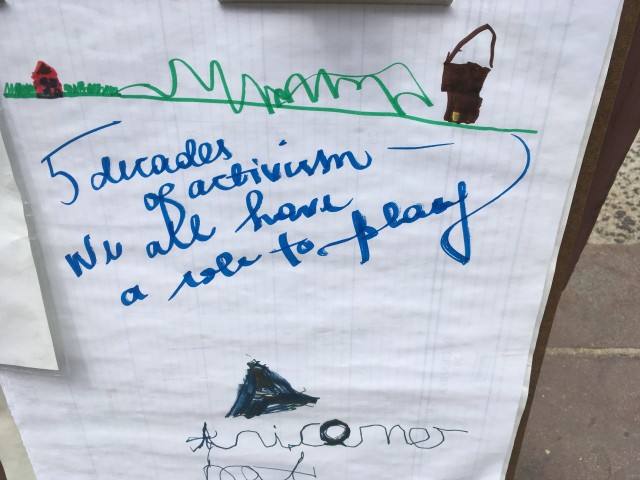 5 decades
of activism —
We all have
a role to play
tricorner
hat